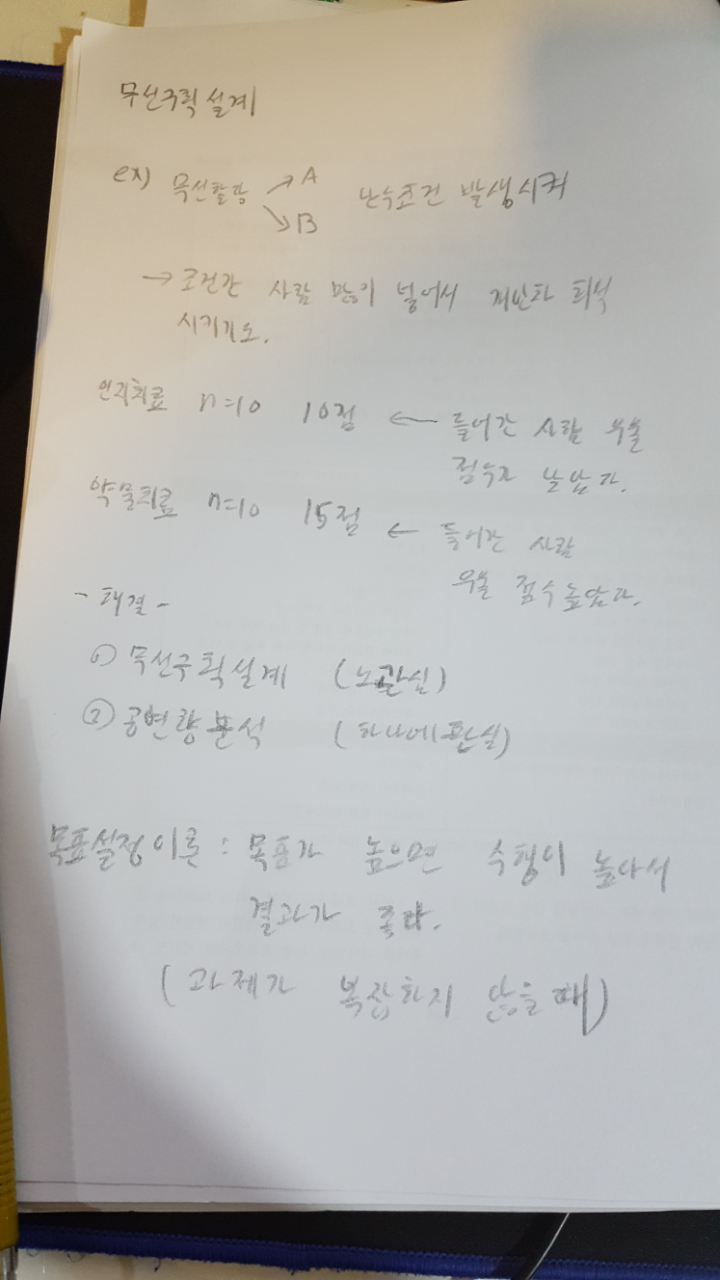 무선구획설계
ex) 무선할당 → A 난수조건 발생시켜
↘ B
→ 조건간 사람 많이 넣어서 개인차 희석
시키기도.
인지치료 n=10 10점 ← 들어간 사람 우울
점수가 낮았다.
약물치료 n=10 15점 ← 들어간 사람
우울 점수 높았다.
- 해결 -
① 무선구획설계 (노관심)
② 공변량분석 (하나에 관심)
목표설정이론 : 목표가 높으면 수행이 높아서
결과가 좋다.
(과제가 복잡하지 않을 때)